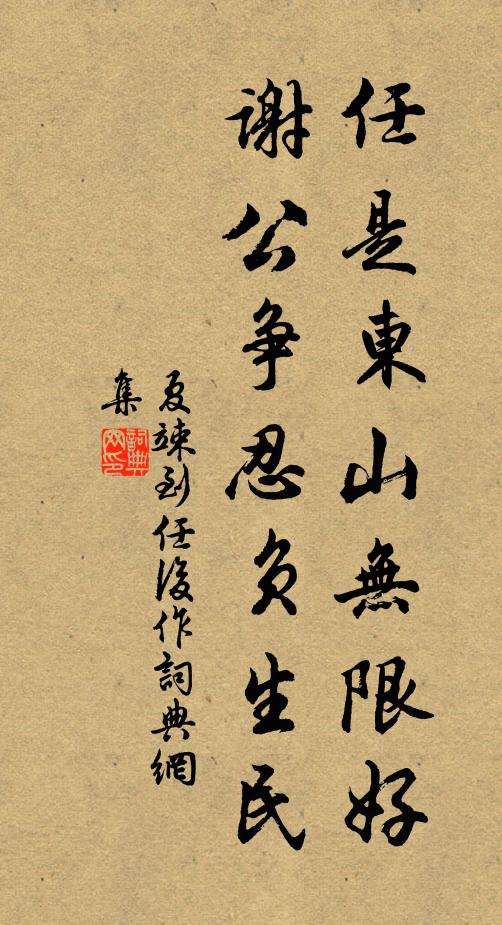 任是東山無限好
謝公争忍負生民
夏竦到任後作詞典網
集
詞典網印